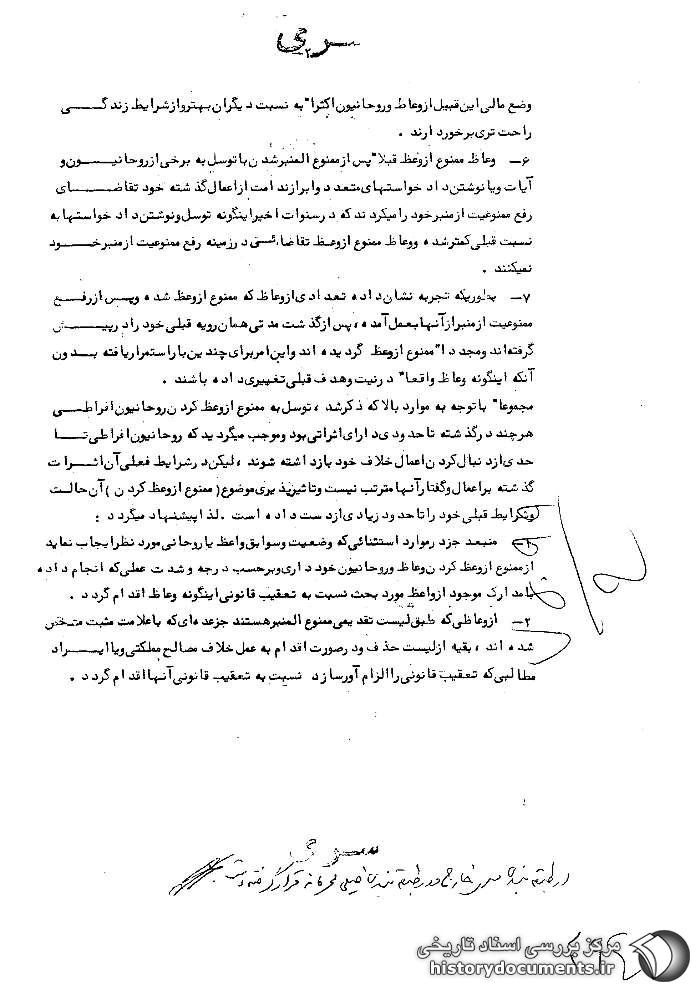 سری
۲
وضع مالی این قبیل ازوعاظ وروحانیون اکثرا" به نسبت دیگران بهتروازشرایط زندگی
راحت تری برخوردارند .
۶- وعاظ ممنوع ازوعظ قبلا" پس ازممنوع المنبرشدن باتوسل به برخی ازروحانیون و
آیات ویانوشتن داد خواستهای متعدد وابرازندامت ازاعمال گذشته خود تقاضای
رفع ممنوعیت ازمنبرخود رامیکردند که درسنوات اخیراینگونه توسل ونوشتن داد خواستهابه
نسبت قبلی کمترشده ووعاظ ممنوع ازوعظ تقاضائی درزمینه رفع ممنوعیت ازمنبرخود
نمیکنند .
۷- بطوریکه تجربه نشان داده تعدادی ازوعاظ که ممنوع ازوعظ شده وپس ازرفع
ممنوعیت ازمنبرازآنهابعمل آمده ، پس ازگذشت مدتی همان رویه قبلی خود رادرپیش
گرفته اند ومجددا" ممنوع ازوعظ گردیده اند واین امربرای چندین باراستمراریافته بدون
آنکه اینگونه وعاظ واقعا" درنیت وهدف قبلی تغییری داده باشند .
مجموعا" باتوجه به موارد بالاکه ذکرشد ، توسل به ممنوع ازوعظ کردن روحانیون افراطی
هرچند درگذشته تاحدودی دارای اثراتی بود وموجب میگردید که روحانیون افراطی تا
حدی ازدنبال کردن اعمال خلاف خود بازداشته شوند ، لیکن درشرایط فعلی آن اثرات
گذشته براعمال وگفتارآنهامترتب نیست وتاثیرپذیری موضوع (ممنوع ازوعظ کردن) آن حالت
وشرایط قبلی خود راتاحدود زیادی ازدست داده است . لذاپیشنهاد میگردد :
۱- منبعد جزدرموارد استثنائی که وضعیت وسوابق واعظ یاروحانی مورد نظرایجاب نماید
ازممنوع ازوعظ کردن وعاظ وروحانیون خودداری وبرحسب درجه وشدت عملی که انجام داده
بامدارک موجود ازواعظ مورد بحث نسبت به تعقیب قانونی اینگونه وعاظ اقدام گردد .
۲- ازوعاظی که طبق لیست تقدیمی ممنوع المنبرهستند جزعده ای که باعلامت مثبت مشخص
شده اند ، بقیه ازلیست حذف ودرصورت اقدام به عمل خلاف مصالح مملکتی ویاایراد
مطالبی که تعقیب قانونی راالزام آورسازد نسبت به تعقیب قانونی آنهااقدام گردد .
سری
قرار گرفته است
مرکز بررسی اسناد تاریخی
historydocuments.ir